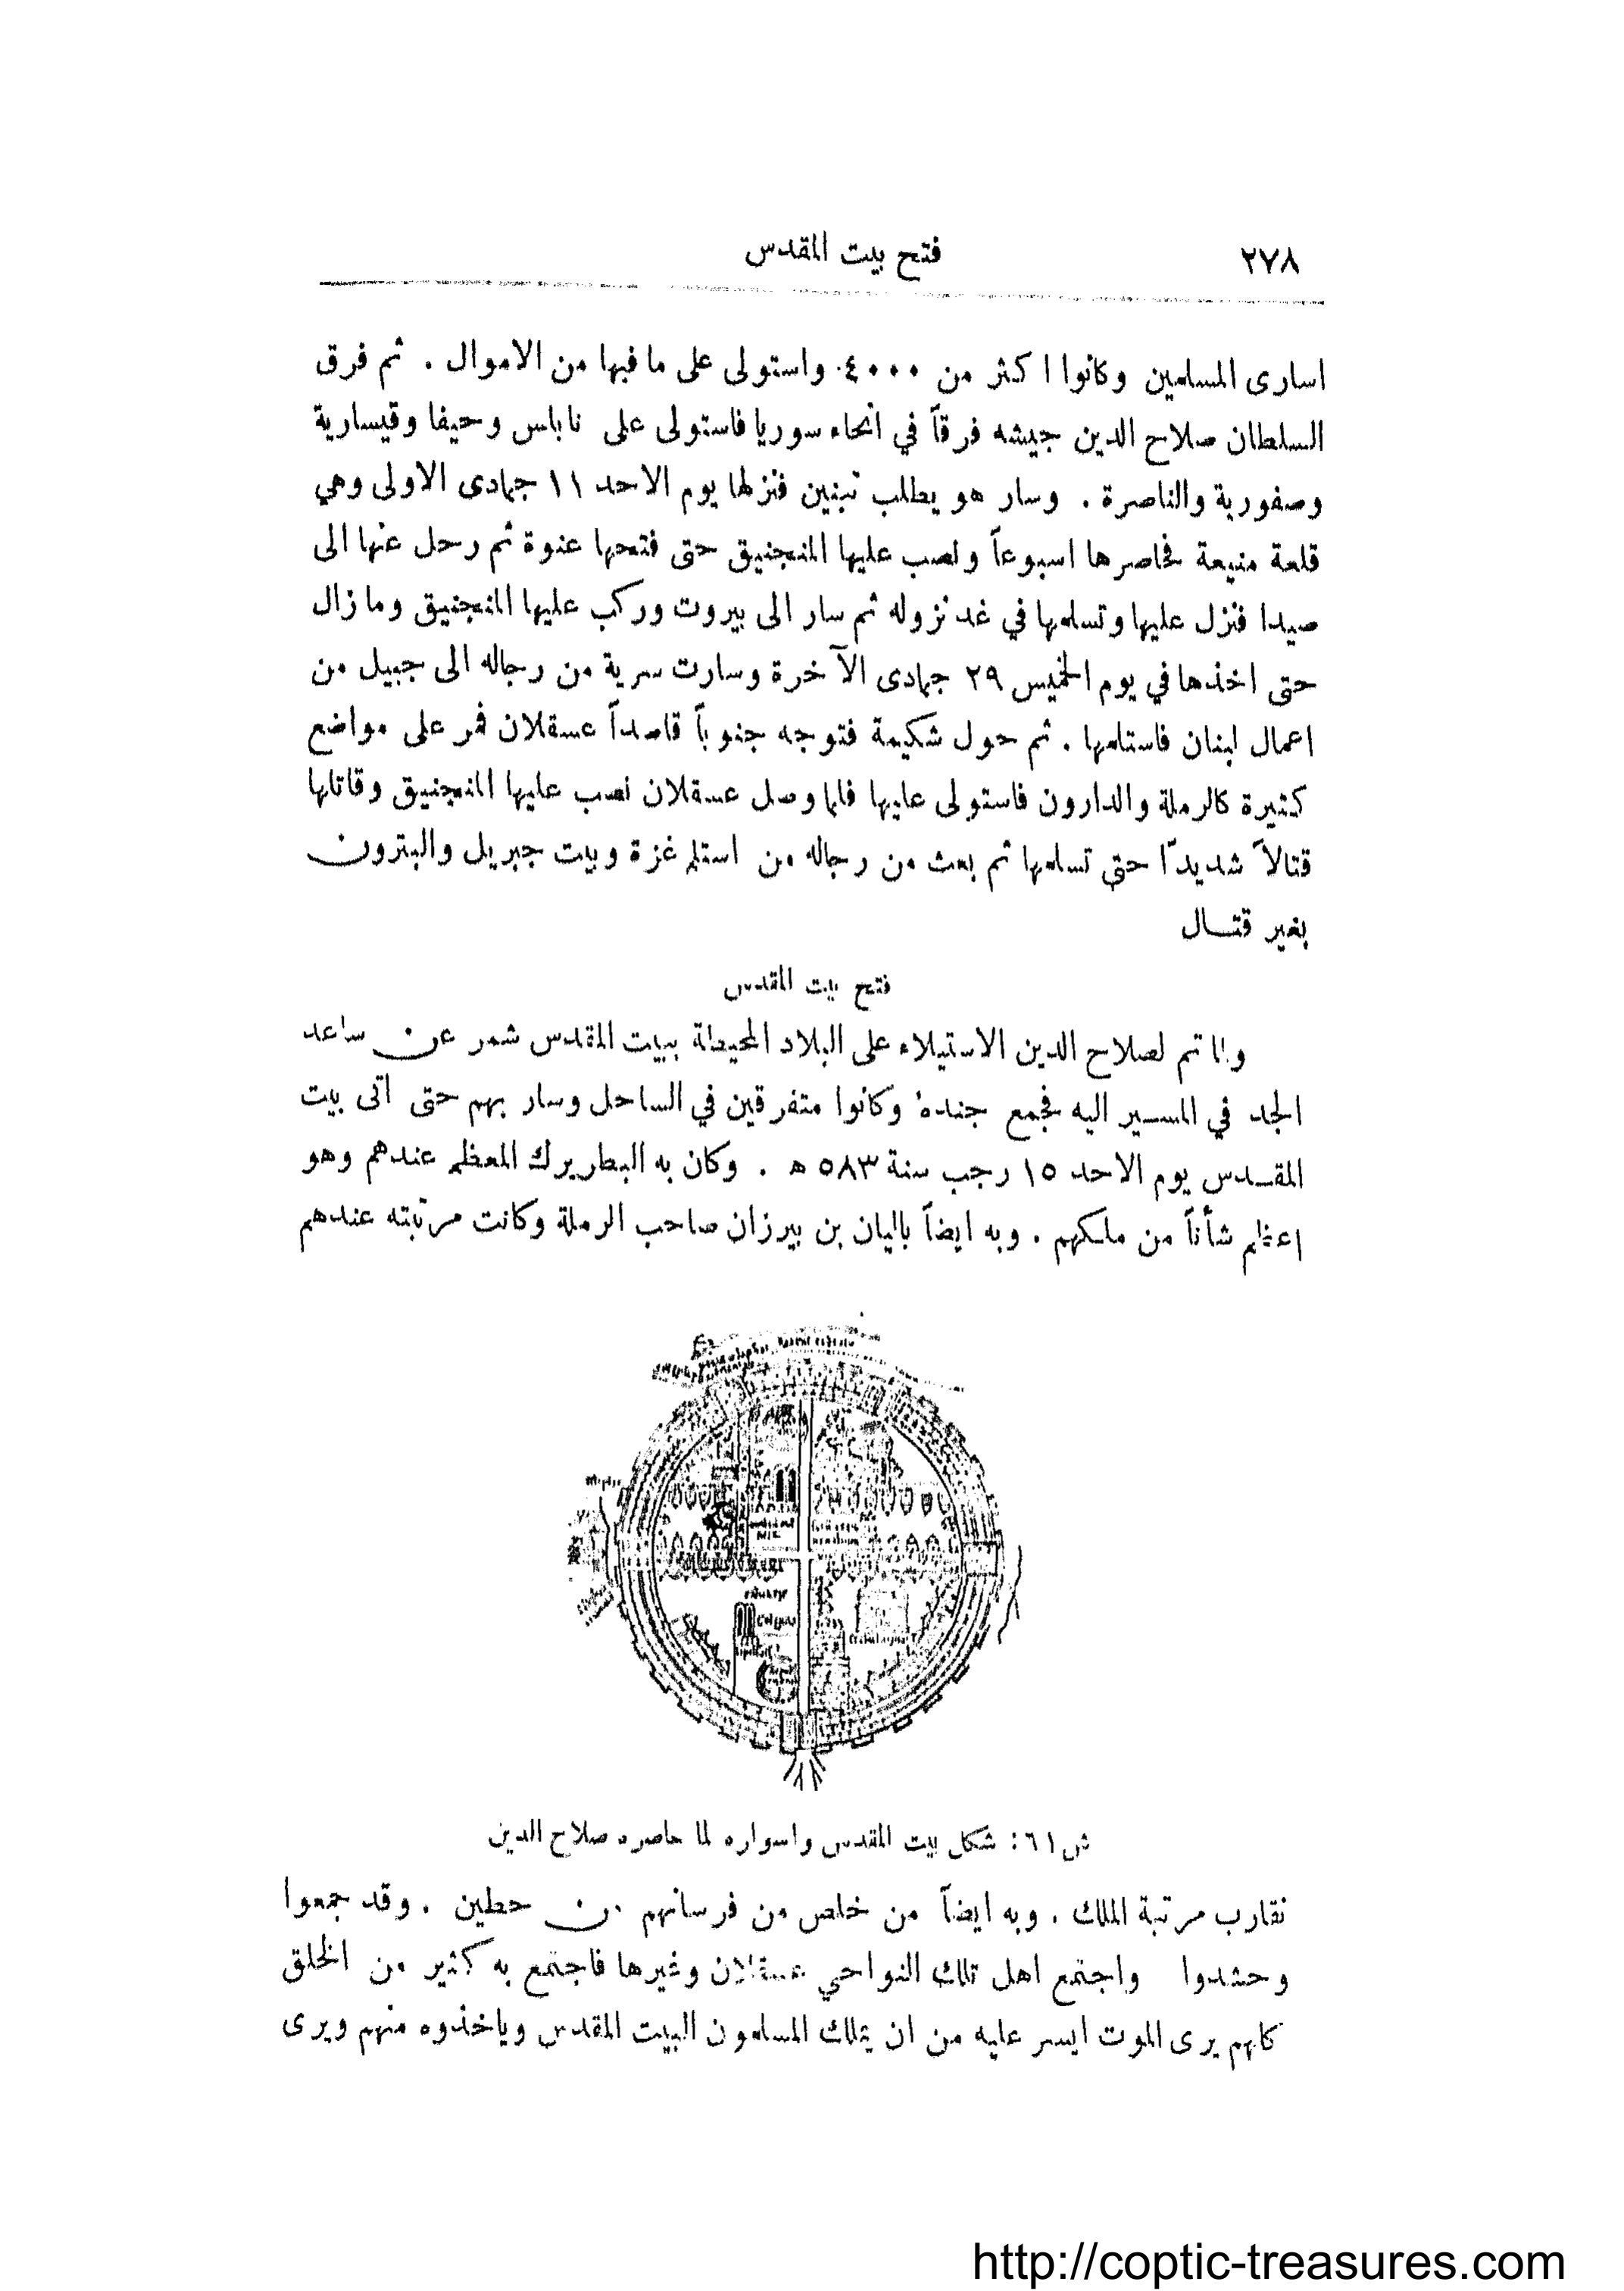 ٢٧٨
فتح بيت المقدس
اسارى المسلمين وكانوا اكثر من ٤٠٠٠ واستولى على ما فيها من الاموال . ثم فرق
السلطان صلاح الدين جيشه فرقاً في انحاء سوريا فاستولى على نابلس وحيفا وقيسارية
وصفورية والناصرة . وسار هو يطلب تبنين فنزلها يوم الاحد ١١ جمادى الاولى وهي
قلعة منيعة فحاصرها اسبوعاً ونصب عليها المنجنيق حتى فتحها عنوة ثم رحل عنها الى
صيدا فنزل عليها وتسلمها في غد نزوله ثم سار الى بيروت وركب عليها المنجنيق وما زال
حتى اخذها في يوم الخميس ٢٩ جمادى الآخرة وسارت سرية من رجاله الى جبيل من
اعمال لبنان فاستلمها . ثم حول شكيمة فتوجه جنوباً قاصداً عسقلان فمر على مواضع
كثيرة كالرملة والدارون فاستولى عليها فلما وصل عسقلان نصب عليها المنجنيق وقاتلها
قتالاً شديدًا حتى تسلمها ثم بعث من رجاله من استلم غزة وبيت جبريل والبترون
بغير قتال
فتح بيت المقدس
ولما تم لصلاح الدين الاستيلاء على البلاد المحيطة ببيت المقدس شمر عن ساعد
الجد في المسير اليه فجمع جندهُ وكانوا متفرقين في الساحل وسار بهم حتى اتى بيت
المقدس يوم الاحد ١٥ رجب سنة ٥٨٣ ه . وكان به البطريرك المعظم عندهم وهو
اعظم شأناً من ملكهم . وبه ايضاً باليان بن بيرزان صاحب الرملة وكانت مرتبته عندهم
ش ٦١ : شكل بيت المقدس واسواره لما حاصره صلاح الدين
تقارب مرتبة الملك . وبه ايضاً من خلص من فرسانهم من حطين . وقد جمعوا
وحشدوا واجتمع اهل تلك النواحي عسقلان وغيرها فاجتمع به كثير من الخلق
كلهم يرى الموت ايسر عليه من ان يملك المسلمون البيت المقدس وياخذوه منهم ويرى
http://coptic-treasures.com